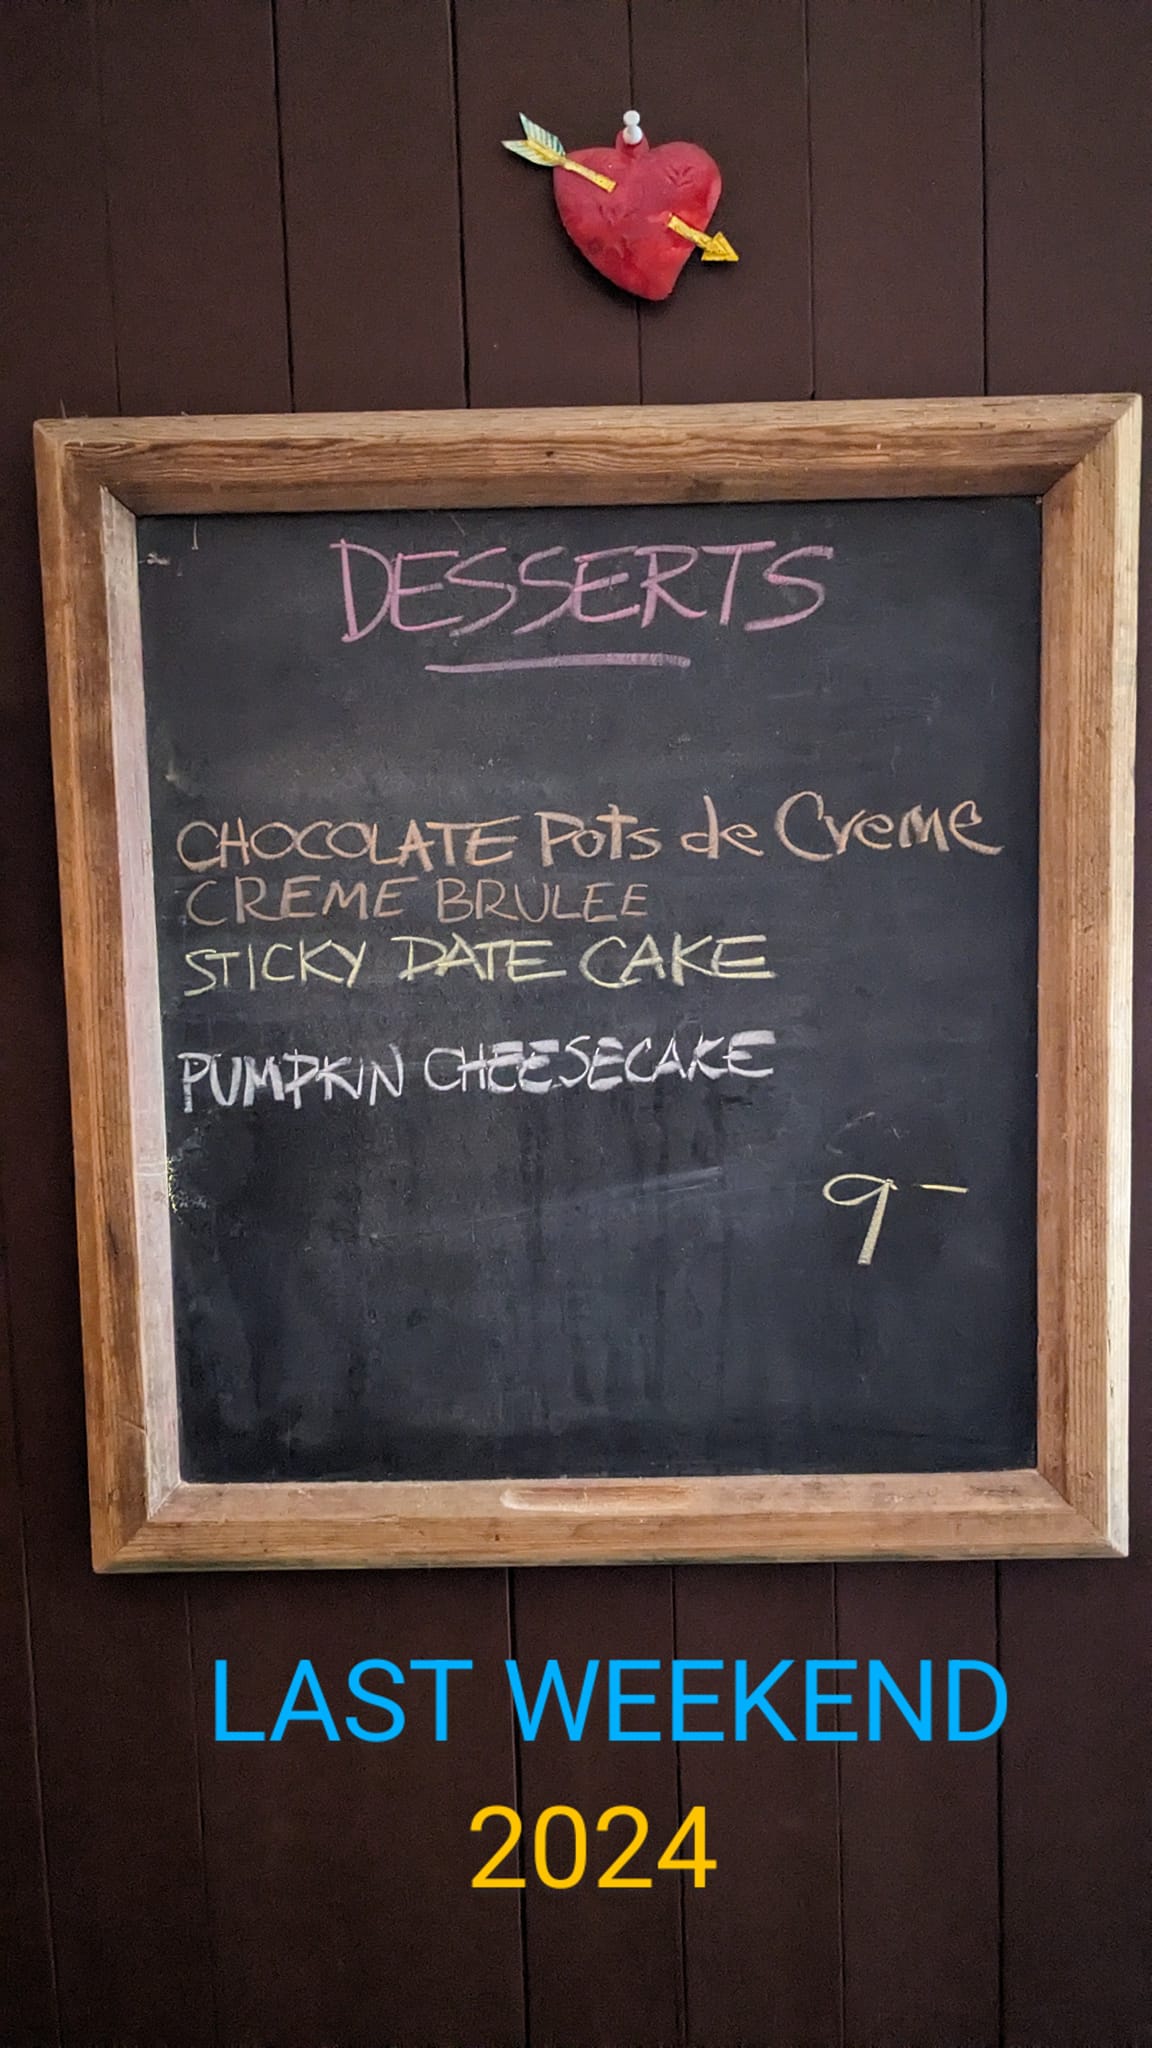 DESSERTS
CHOCOLATE Pots de Creme
CREME BRULEE
STICKY DATE CAKE
PUMPKIN CHEESECAKE
9-
LAST WEEKEND
2024